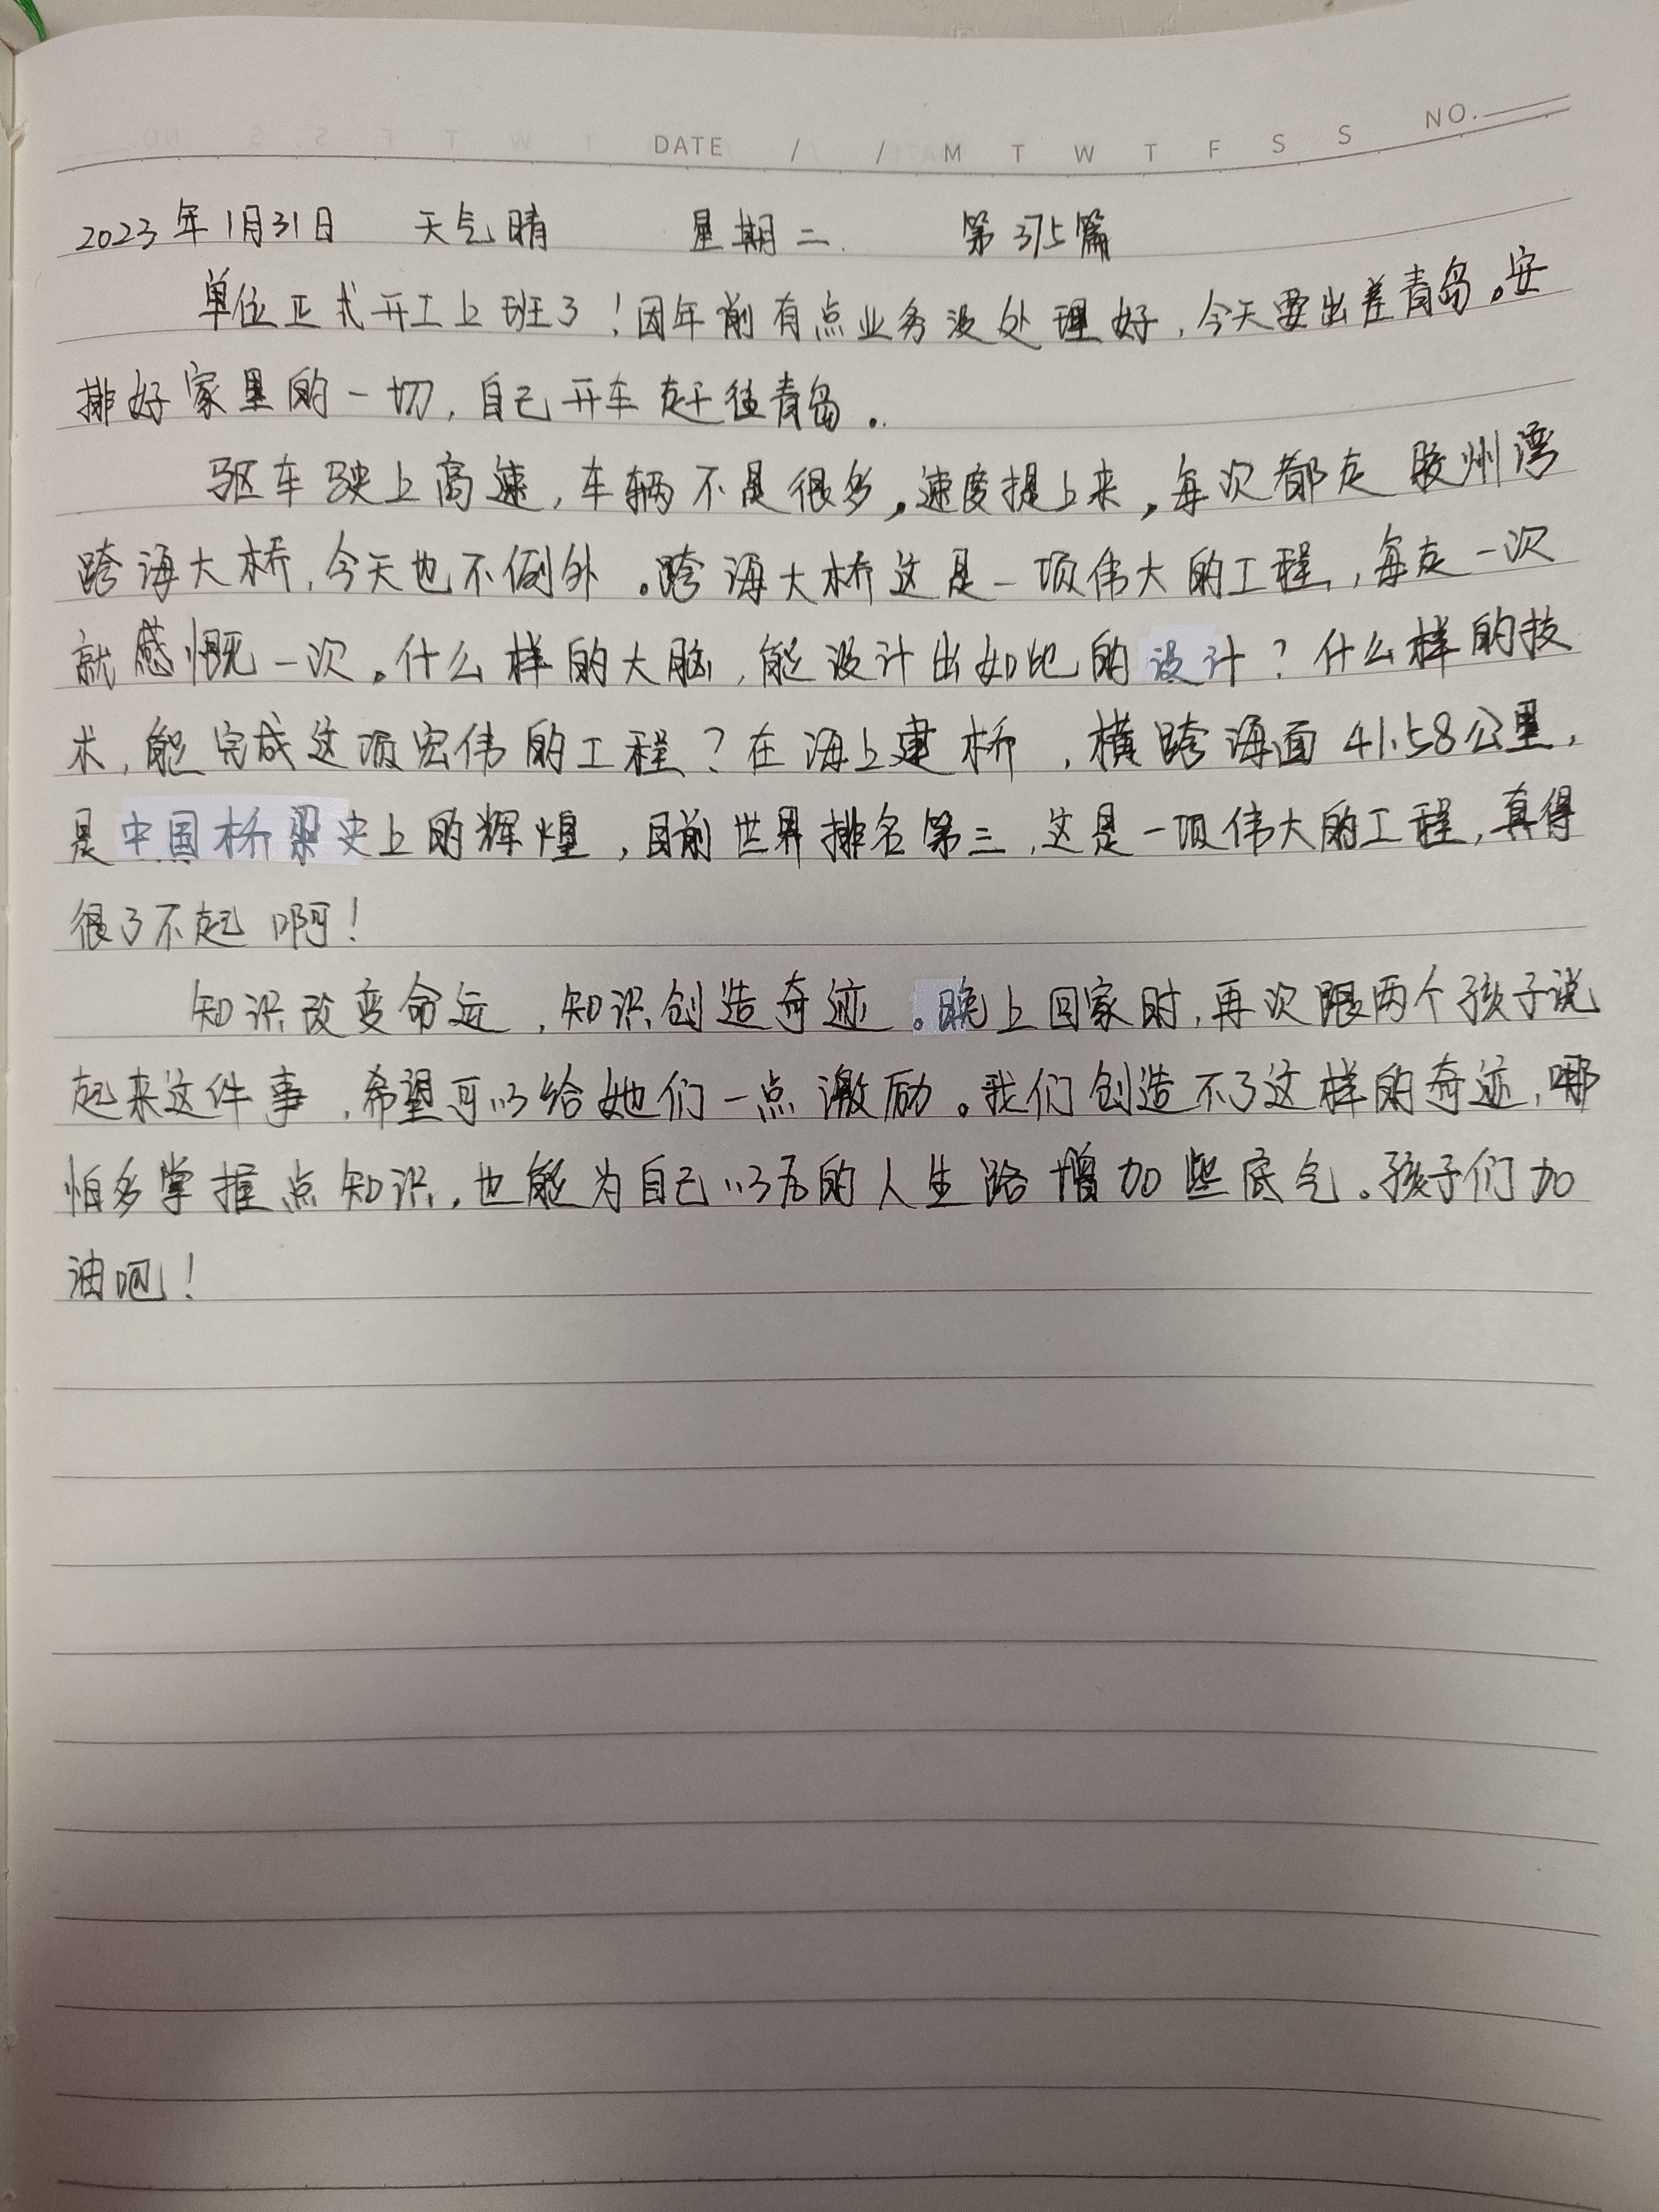 DATE / / M T W T F S S NO.
2023年1月31日 天气晴 星期二 第375篇
单位正式开工上班了！因年前有点业务没处理好，今天要出差青岛。安
排好家里的一切，自己开车赶往青岛。
驱车驶上高速，车辆不是很多，速度提上来，每次都走胶州湾
跨海大桥，今天也不例外。跨海大桥这是一项伟大的工程，每走一次
就感慨一次。什么样的大脑，能设计出如此的设计？什么样的技
术，能完成这项宏伟的工程？在海上建桥，横跨海面41.58公里，
是中国桥梁史上的辉煌，目前世界排名第三，这是一项伟大的工程，真得
很了不起啊！
知识改变命运，知识创造奇迹。晚上回家时，再次跟两个孩子说
起来这件事，希望可以给她们一点激励。我们创造不了这样的奇迹，哪
怕多掌握点知识，也能为自己以后的人生路增加些底气。孩子们加
油吧！